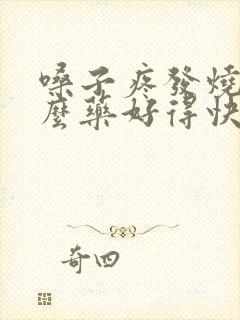 嗓子疼發燒
麼藥好得快
奇四